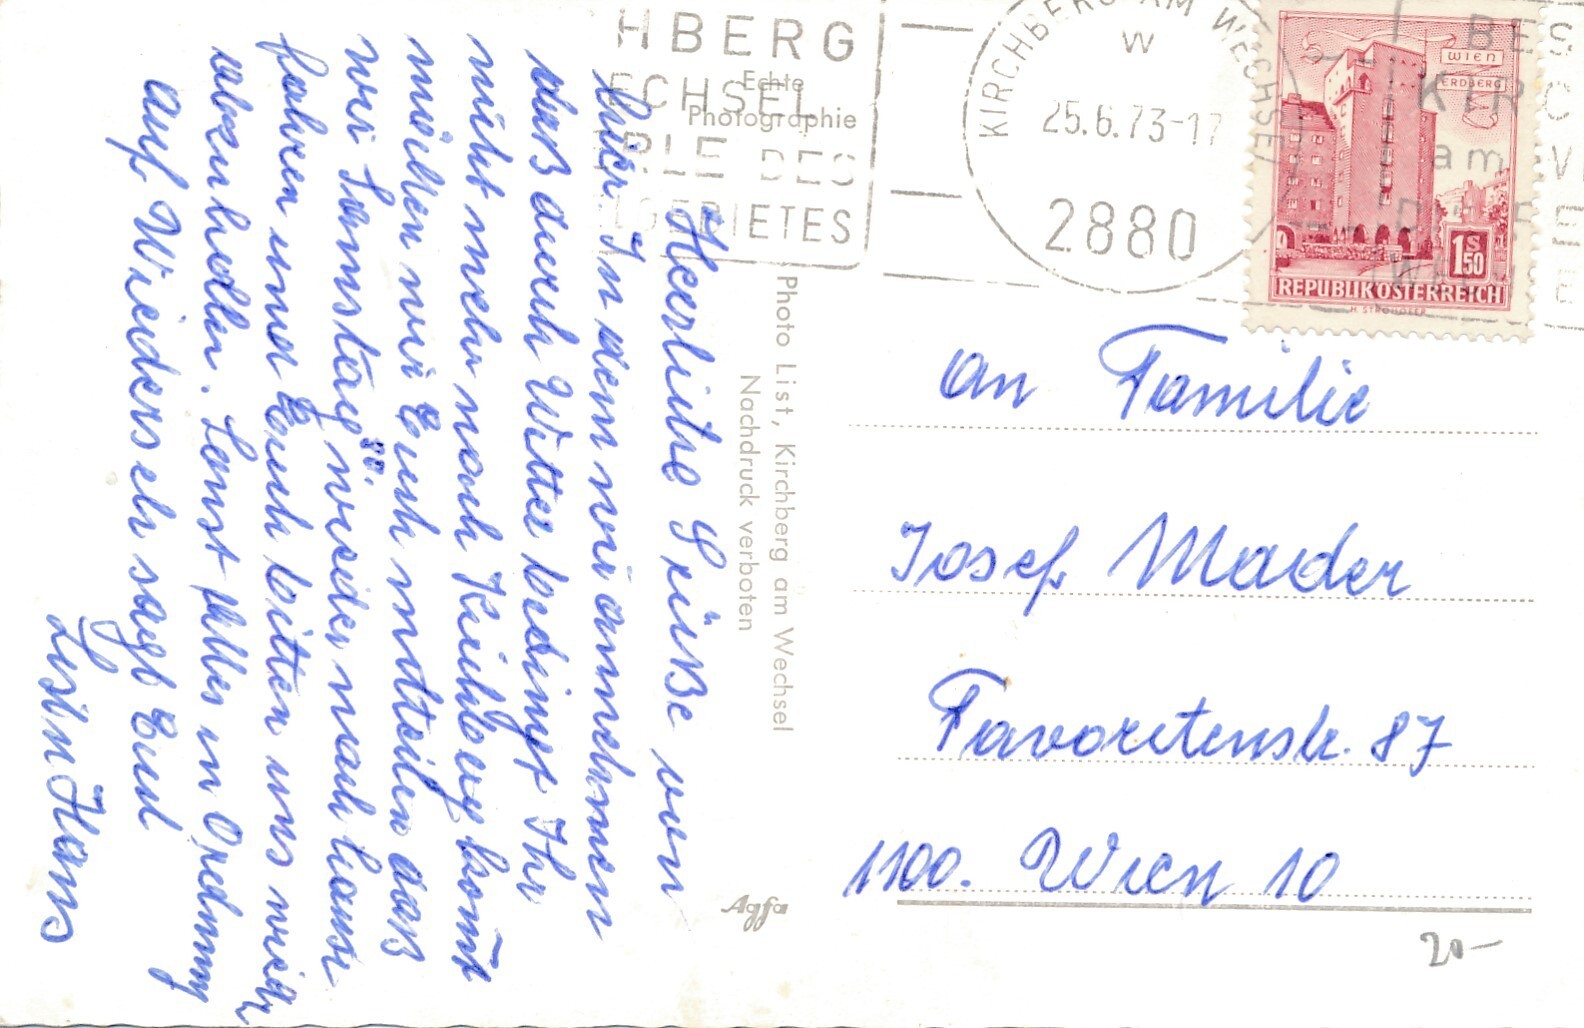 Herrliche Grüße von
hier. In dem wir annehmen
daß durch Wetter bedingt Ihr
nicht mehr nach Kirchberg komt
möchten wir Euch mitteilen daß
wir Samstag 30. wieder nach hause
fahren und Euch bitten uns wieder
abzuhollen. Sonst Alles in Ordnung
Auf Wiedersehn sagt Euch
Hans
Echte
Photographie
Photo List, Kirchberg am Wechsel
Nachdruck verboten
Agfa
HBERG
ECHSEL
RLE DES
GEBIETES
KIRCHBERG AM WECHSEL
W
25.6.73-17
2880
WIEN
ERDBERG
1 S 50
REPUBLIK ÖSTERREICH
H. STROHOFER
BES
KIRC
am
An Familie
Josef Mader
Favoritenstr. 87
1100. Wien 10
20-